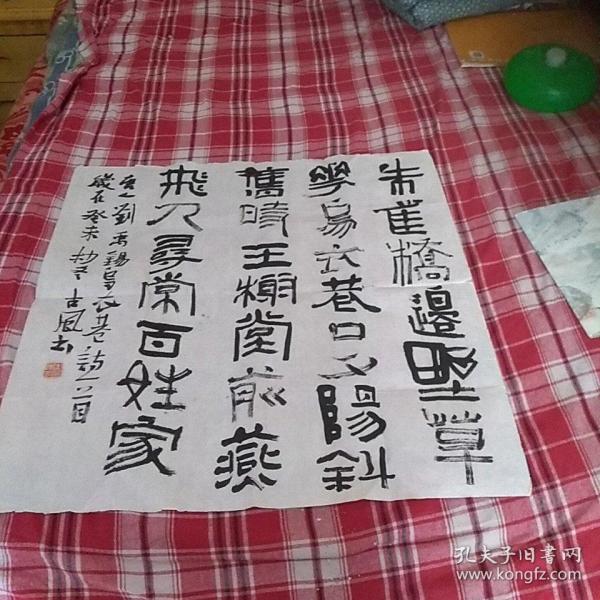 朱雀橋邊野草
華烏衣巷口夕陽斜
舊時王榭堂前燕
飛入尋常百姓家
唐劉禹錫烏衣巷詩一首
歲在癸未 古風书
孔夫子旧书网
www.kongfz.com